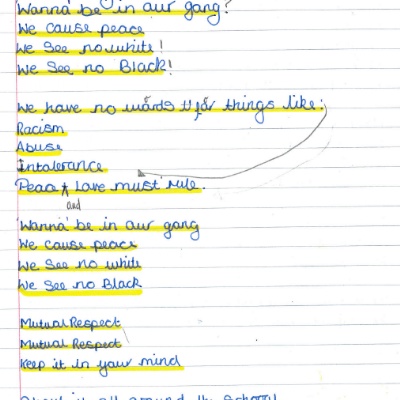 Wanna be in our gang?
We cause peace
We See no white!
We See no Black!
We have no words for things like:
Racism
Abuse
Intolerance
Peace and Love must rule.
Wanna be in our gang
We cause peace
We See no white
We See no Black
Mutual Respect
Mutual Respect
Keep it in your mind